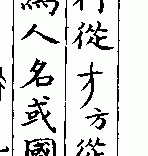 從才方從
人名或國